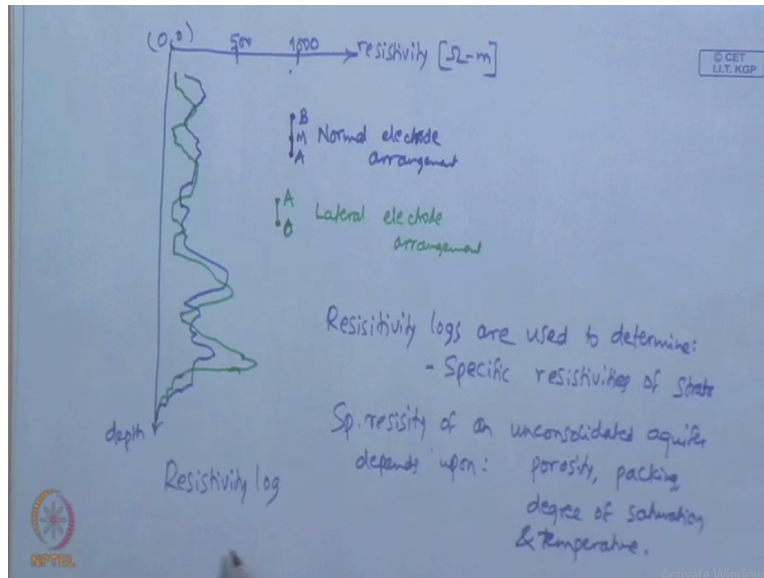 (0,0) 500 1000 resistivity [Ω-m]
© CET
I.I.T. KGP
B
M Normal electrode
A arrangement
A Lateral electrode
O arrangement
Resisitivity logs are used to determine:
- Specific resistivities of strata
Sp. resisity of an unconsolidated aquifer
depends upon: porosity, packing,
degree of saturation
& temperature.
depth
Resistivity log
NPTEL
Activate Windows